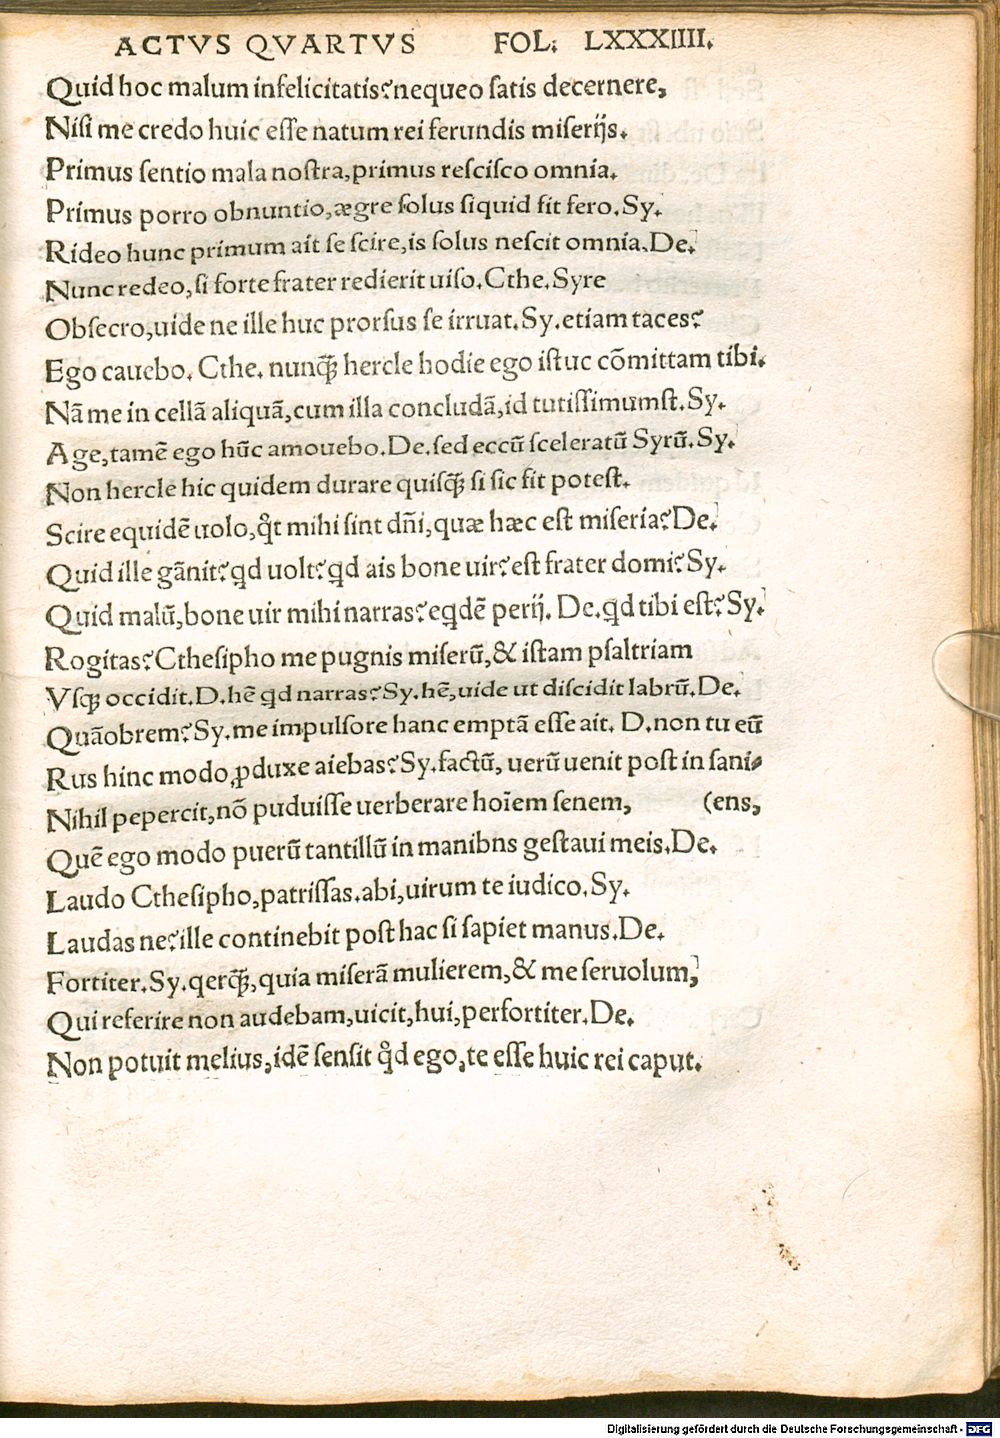 ACTVS QVARTVS FOL: LXXXIIII.
Quid hoc malum infelicitatis? nequeo ſatis decernere,
Niſi me credo huic eſſe natum rei ferundis miſerijs.
Primus ſentio mala noſtra, primus reſciſco omnia.
Primus porro obnuntio, ægre ſolus ſiquid fit fero. Sy.
Rideo hunc primum ait ſe ſcire, is ſolus neſcit omnia. De.
Nunc redeo, ſi forte frater redierit uiſo. Cthe. Syre
Obſecro, uide ne ille huc prorſus ſe irruat. Sy. etiam taces?
Ego cauebo. Cthe. nunq̃ hercle hodie ego iſtuc cõmittam tibi.
Nã me in cellã aliquã, cum illa concludã, id tutiſſimumſt. Sy.
Age, tamẽ ego hũc amouebo. De. ſed eccũ ſceleratũ Syrũ. Sy.
Non hercle hic quidem durare quiſq̃ ſi ſic fit poteſt.
Scire equidẽ uolo, qͦt mihi ſint dñi, quæ hæc eſt miſeria? De.
Quid ille gãnit? ꝗd uolt? ꝗd ais bone uir? eſt frater domi? Sy.
Quid malũ, bone uir mihi narras? eꝗdẽ perij. De. ꝗd tibi eſt? Sy.
Rogitas? Ctheſipho me pugnis miſerũ, & iſtam pſaltriam
Vſqꝫ occidit. D. hẽ ꝗd narras? Sy. hẽ, uide ut diſcidit labrũ. De.
Quãobrem? Sy. me impulſore hanc emptã eſſe ait. D. non tu eũ
Rus hinc modo ꝓduxe aiebas? Sy. factũ, uerũ uenit poſt in ſani-
Nihil pepercit, nõ puduiſſe uerberare hoĩem ſenem, (ens,
Quẽ ego modo puerũ tantillũ in manibns geſtaui meis. De.
Laudo Ctheſipho, patriſſas. abi, uirum te iudico. Sy.
Laudas ne? ille continebit poſt hac ſi ſapiet manus. De.
Fortiter. Sy. qerq̃, quia miſerã mulierem, & me ſeruolum,
Qui referire non audebam, uicit, hui, perfortiter. De.
Non potuit melius, idẽ ſenſit qͦd ego, te eſſe huic rei caput.
Digitalisierung gefördert durch die Deutsche Forschungsgemeinschaft - DFG